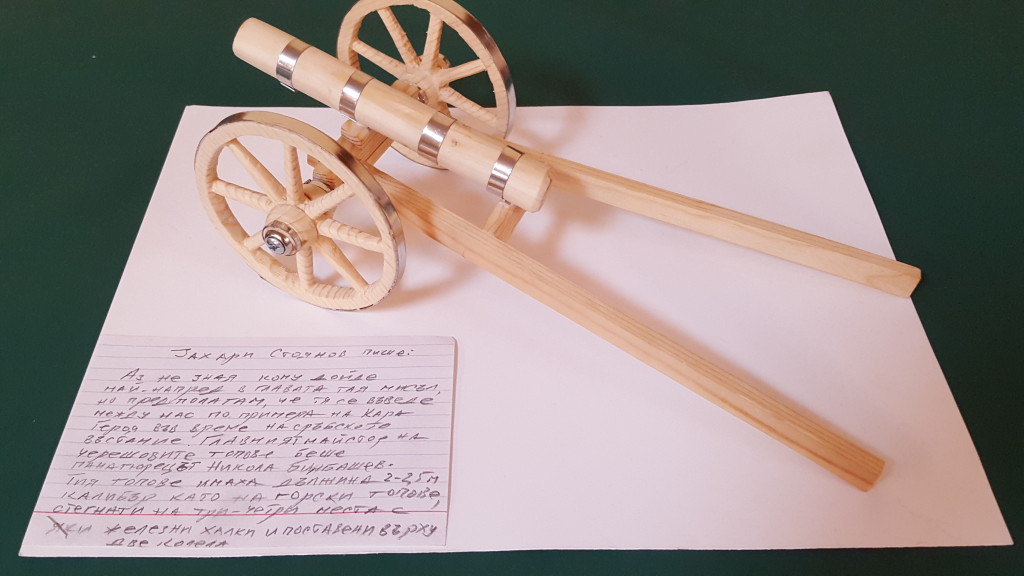 Захари Стоянов пише:
Аз не зная кому дойде
най-напред в главата тая мисъл,
но предполагам, че тя се въведе
между нас по примера на Кара
Георя във време на сръбското
въстание. Главният майстор на
черешовите топове беше
панагюрецът Никола Бимбашев.
Тия топове имаха дължина 2-2,5м
калибър като на горски топове,
стегнати на три-четри места с
яки железни халки и поставени върху
две колела